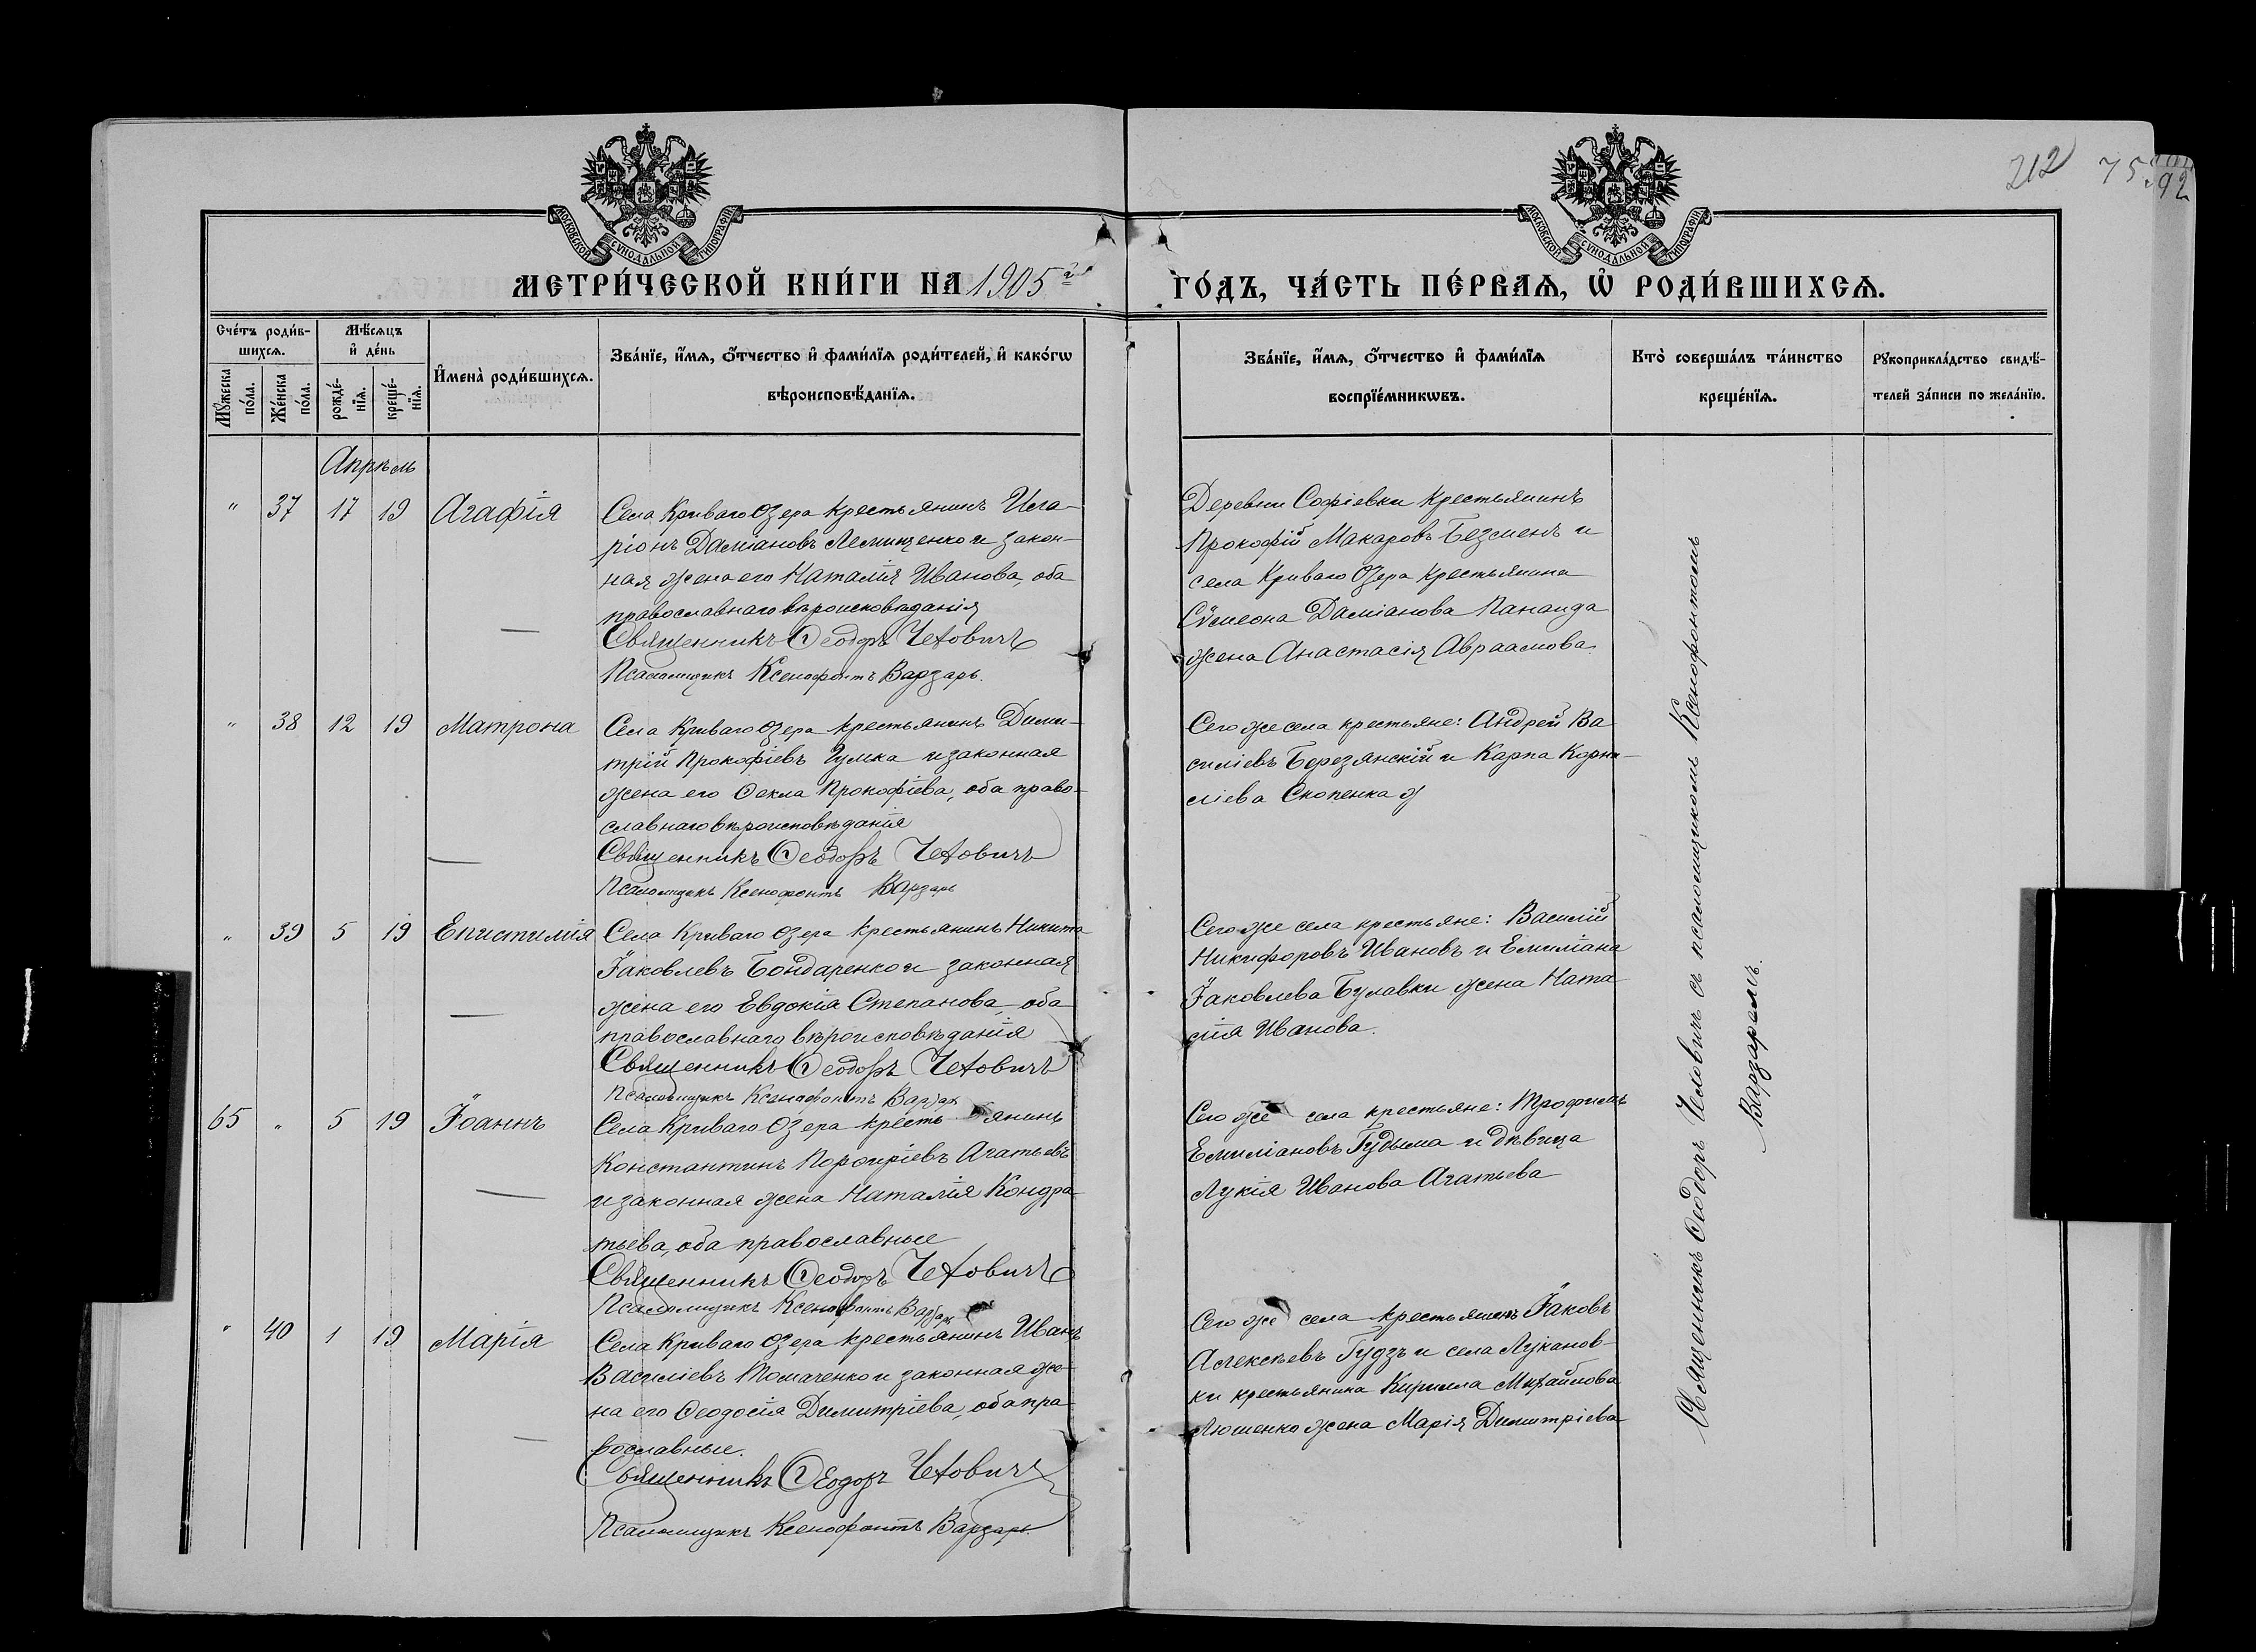 212 75 92
МОСКОВСКОЙ СѴНОДАЛЬНОЙ ТИПОГРАФІИ
МОСКОВСКОЙ СѴНОДАЛЬНОЙ ТИПОГРАФІИ
МЕТРИ́ЧЕСКОЙ КНИ́ГИ НА 1905й
ГО́ДЪ, ЧА́СТЬ ПЕ́РВАѦ, Ѡ҆ РОДИ́ВШИХСѦ.
Сче́тъ роди́в-
шихсѧ.
Мꙋ́жеска по́ла.
Же́нска по́ла.
Мѣ́сѧцъ
и҆ де́нь
рожде́-
нїѧ.
креще́-
нїѧ.
И҆мена̀ роди́вшихсѧ.
Зва́нїе, и҆́мѧ, ѻ҆́тчество и҆ фами́лїѧ роди́телей, и҆ како́гѡ
вѣроисповѣ́данїѧ.
Зва́нїе, и҆́мѧ, ѻ҆́тчество и҆ фами́лїѧ
воспрїе́мникѡвъ.
Кто̀ соверша́лъ та́инство
креще́нїѧ.
Рꙋкоприкла́дство свидѣ́-
телей за́писи по жела́нїю.
Апрѣль
" 37 17 19 Агафія
Села Криваго Озера крестьянинъ Ила-
ріонъ Даміановъ Лемищенко и закон-
ная жена его Наталія Иванова, оба
православнаго вѣроисповѣданія
Священникъ Ѳеодоръ Человичъ
Псаломщикъ Ксенофонтъ Варзарь.
Деревни Софіевки крестьянинъ
Прокофій Макаровъ Безменъ и
села Криваго Озера крестьянина
Сѵмеона Даміанова Пананда
жена Анастасія Авраамова.
" 38 12 19 Матрона
Села Криваго Озера крестьянинъ Дими-
трій Прокофіевъ Гумка и законная
жена его Ѳекла Прокофіева, оба право-
славнаго вѣроисповѣданія
Священникъ Ѳеодоръ Человичъ
Псаломщикъ Ксенофонтъ Варзарь
Сего же села крестьяне: Андрей Ва
силіевъ Березянскій и Карпа Корни-
ліева Скопенка
" 39 5 19 Епистимія
Села Криваго Озера крестьянинъ Никита
Іаковлевъ Бондаренко и законная
жена его Евдокія Степанова, оба
православнаго вѣроисповѣданія
Священникъ Ѳеодоръ Человичъ
Псаломщикъ Ксенофонтъ Варзарь
Сего же села крестьяне: Василій
Никифоровъ Ивановъ и Емиліана
Іаковлева Булавки жена Ната
лія Иванова.
65 " 5 19 Іоаннъ
Села Криваго Озера крестьянинъ
Константинъ Порфиріевъ Агатьевъ
и законная жена Наталія Кондра
тьева, оба православные
Священникъ Ѳеодоръ Человичъ
Псаломщикъ Ксенофонтъ Варзарь
Сего же села крестьяне: Трофимъ
Емиліановъ Гудыма и дѣвица
Лукія Иванова Агатьева
" 40 1 19 Марія
Села Криваго Озера крестьянинъ Иванъ
Василіевъ Томаченко и законная же-
на его Ѳеодосія Димитріева, оба пра-
вославные.
Священникъ Ѳеодоръ Человичъ
Псаломщикъ Ксенофонтъ Варзарь
Сего же села крестьянинъ Іаковъ
Алексѣевъ Гудзь и села Лукановки
ки крестьянина Кирилла Михайлова
Люшенко жена Марія Димитріева
Священникъ Ѳеодоръ Челович съ псаломщикомъ Ксенофонтомъ
Варзаремъ.